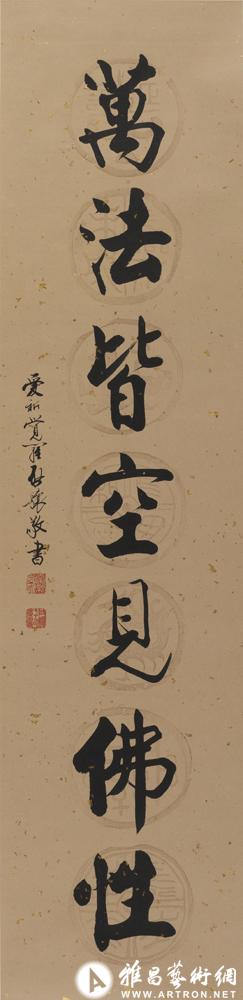 萬法皆空見佛性
愛新覺羅啟驤敬書
雅昌藝術網
WWW.ARTRON.NET